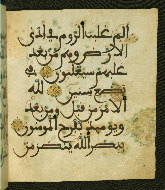 الم غلبت الروم في ادنى
الارض وهم من بعد
غلبهم سيغلبون في
بضع سنين لله
الامر من قبل ومن بعد
ويومئذ يفرح المومنون
بنصر الله ينصر من